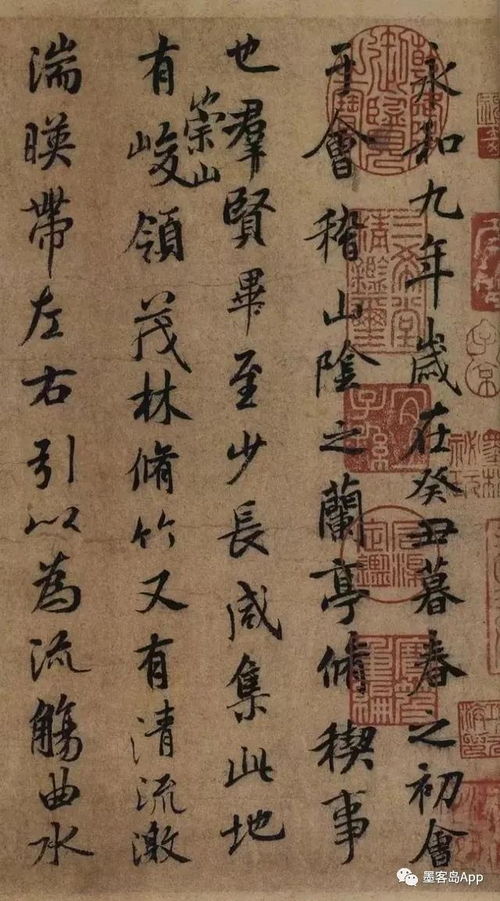 永和九年歲在癸丑暮春之初會
于會稽山陰之蘭亭脩稧事
也羣賢畢至少長咸集此地
有崇山峻領茂林脩竹又有清流激
湍暎帶左右引以為流觴曲水
三希堂精鑑璽
宜子孫
墨客岛App